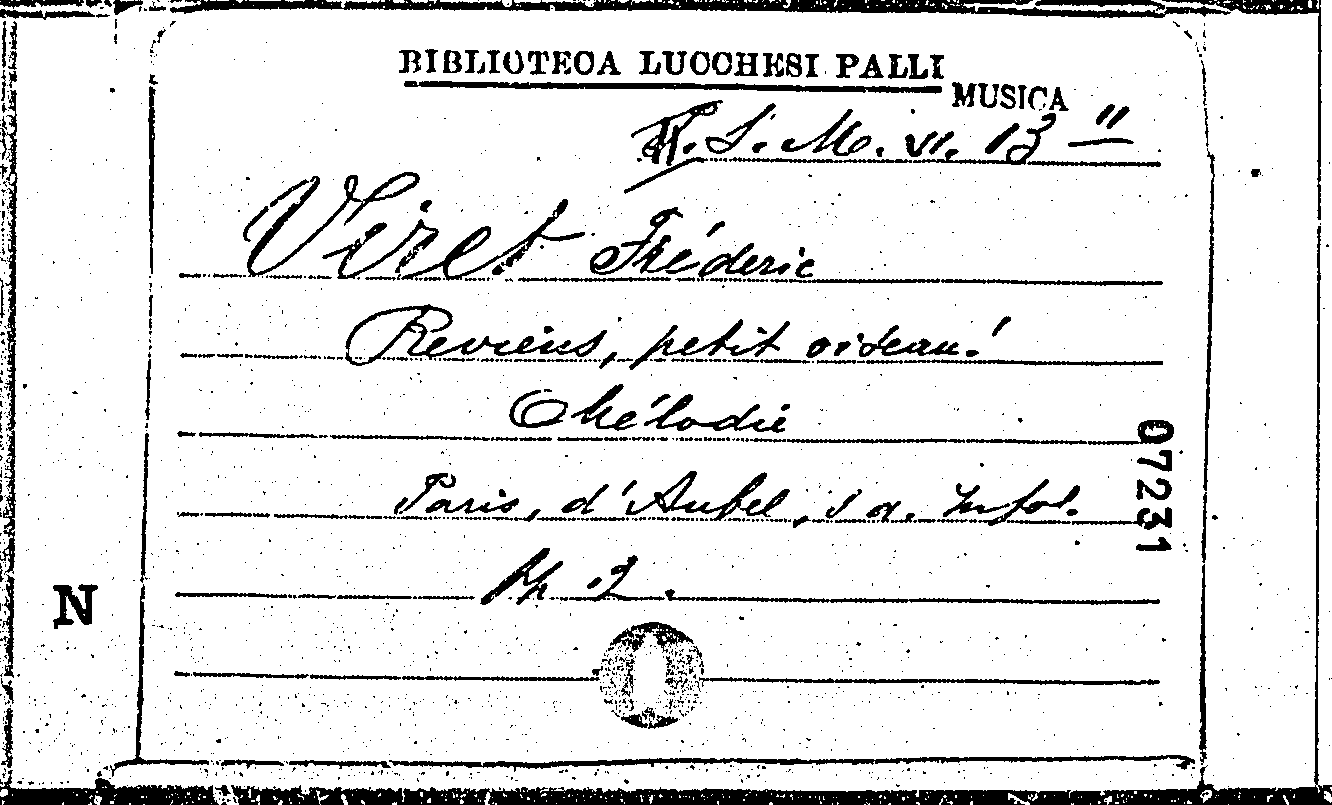 BIBLIOTECA LUCCHESI PALLI
MUSICA
S. M. VI. 13 "
Viret Fréderic
Reviens, petit oiseau!
Mélodie
Paris, d'Aubel, s a. In fol.
2.
07231
N